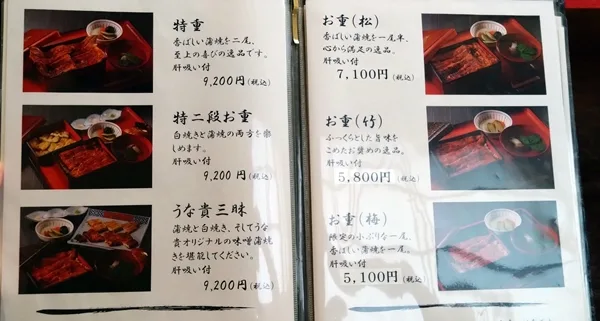 特重
香ばしい蒲焼を二尾、
至上の喜びの逸品です。
肝吸い付
9,200円(税込)
特二段お重
白焼きと蒲焼の両方を楽
しめます。
肝吸い付
9,200円(税込)
うな貴三昧
蒲焼と白焼き、そしてうな
貴オリジナルの味噌蒲焼
きを堪能してください。
肝吸い付
9,200円(税込)
お重(松)
香ばしい蒲焼を一尾半、
心から満足の逸品。
肝吸い付
7,100円(税込)
お重(竹)
ふっくらとした旨味を
こめたお奨めの逸品。
肝吸い付
5,800円(税込)
お重(梅)
限定の小ぶりな一尾、
香ばしい蒲焼を一尾。
肝吸い付
5,100円(税込)